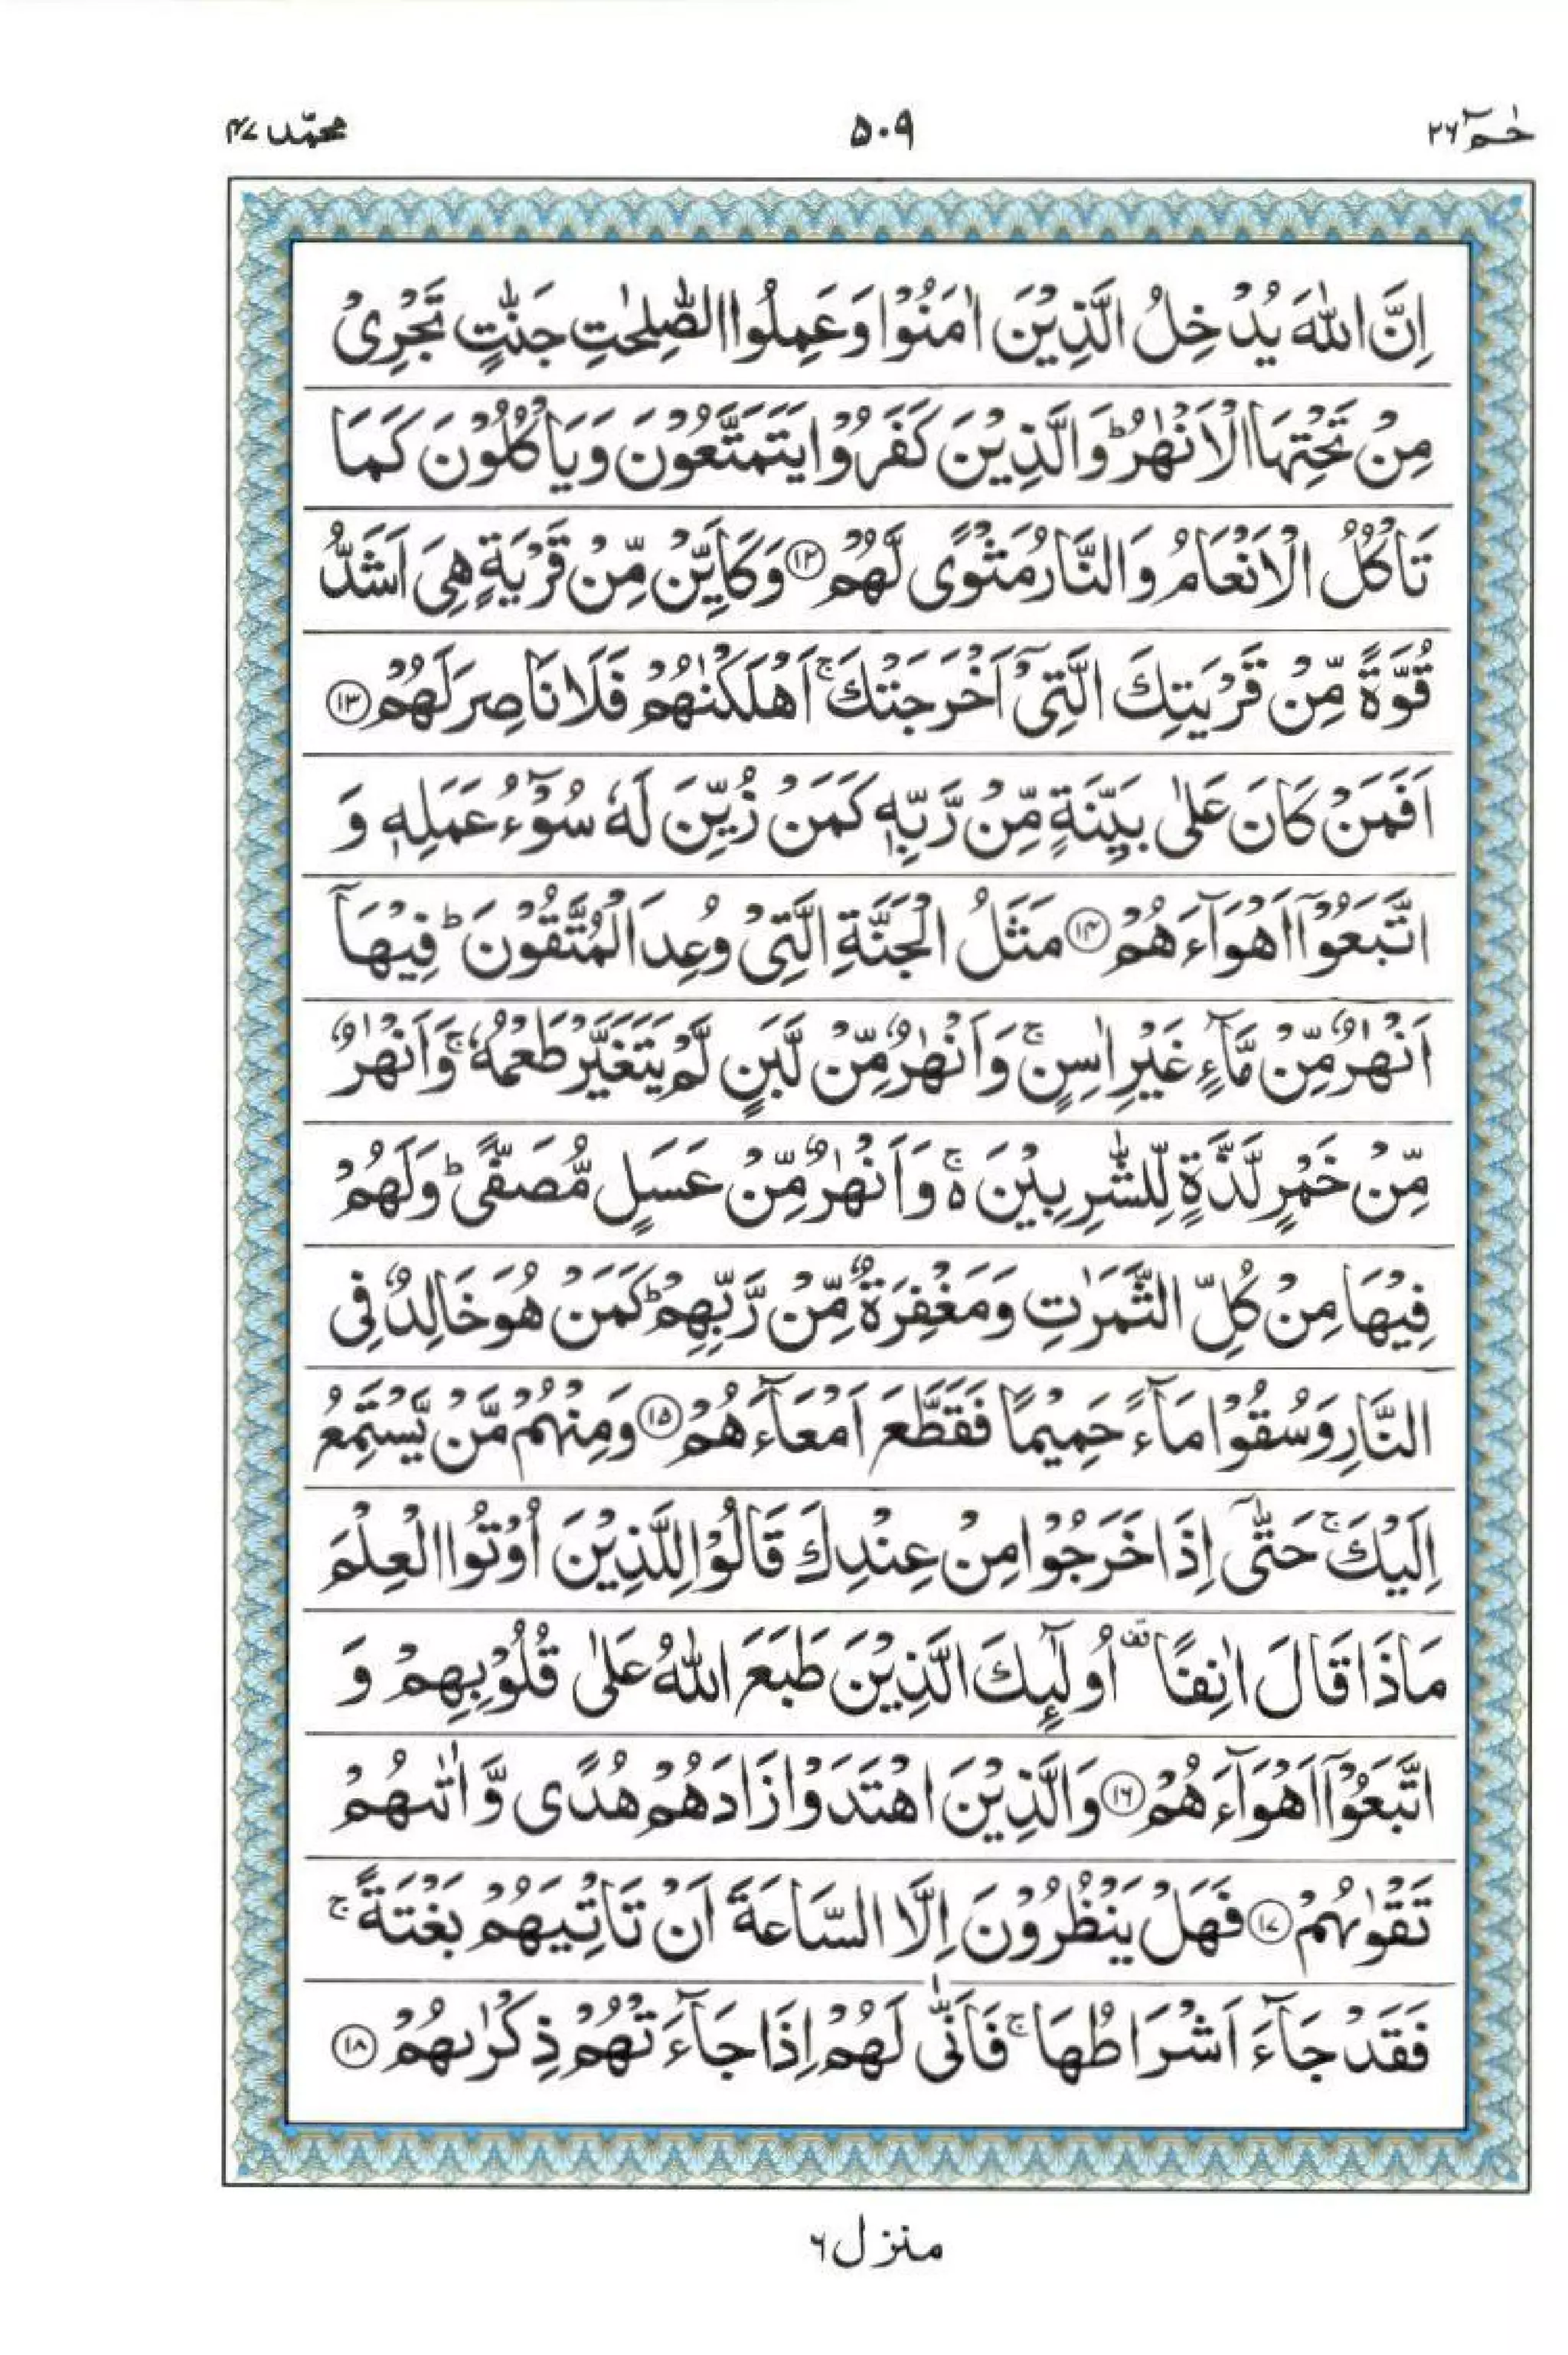 حٰمٓ ۲۶ ۵۰۹ محمّد ۴۷
اِنَّ اللّٰهَ يُدْخِلُ الَّذِيْنَ اٰمَنُوْا وَعَمِلُوا الصّٰلِحٰتِ جَنّٰتٍ تَجْرِىْ
مِنْ تَحْتِهَا الْاَنْهٰرُ ؕ وَالَّذِيْنَ كَفَرُوْا يَتَمَتَّعُوْنَ وَيَاْكُلُوْنَ كَمَا
تَاْكُلُ الْاَنْعَامُ وَالنَّارُ مَثْوًى لَّهُمْ ۱۲ وَكَاَيِّنْ مِّنْ قَرْيَةٍ هِىَ اَشَدُّ
قُوَّةً مِّنْ قَرْيَتِكَ الَّتِىْۤ اَخْرَجَتْكَ ۚ اَهْلَكْنٰهُمْ فَلَا نَاصِرَ لَهُمْ ۱۳
اَفَمَنْ كَانَ عَلٰى بَيِّنَةٍ مِّنْ رَّبِّهٖ كَمَنْ زُيِّنَ لَهٗ سُوْٓءُ عَمَلِهٖ وَ
اتَّبَعُوْۤا اَهْوَآءَهُمْ ۱۴ مَثَلُ الْجَنَّةِ الَّتِىْ وُعِدَ الْمُتَّقُوْنَ ؕ فِيْهَاۤ
اَنْهٰرٌ مِّنْ مَّآءٍ غَيْرِ اٰسِنٍ ۚ وَاَنْهٰرٌ مِّنْ لَّبَنٍ لَّمْ يَتَغَيَّرْ طَعْمُهٗ ۚ وَاَنْهٰرٌ
مِّنْ خَمْرٍ لَّذَّةٍ لِّلشّٰرِبِيْنَ ۚ۬ وَاَنْهٰرٌ مِّنْ عَسَلٍ مُّصَفًّى ؕ وَلَهُمْ
فِيْهَا مِنْ كُلِّ الثَّمَرٰتِ وَمَغْفِرَةٌ مِّنْ رَّبِّهِمْ ؕ كَمَنْ هُوَ خَالِدٌ فِى
النَّارِ وَسُقُوْا مَآءً حَمِيْمًا فَقَطَّعَ اَمْعَآءَهُمْ ۱۵ وَمِنْهُمْ مَّنْ يَّسْتَمِعُ
اِلَيْكَ ۚ حَتّٰٓى اِذَا خَرَجُوْا مِنْ عِنْدِكَ قَالُوْا لِلَّذِيْنَ اُوْتُوا الْعِلْمَ
مَاذَا قَالَ اٰنِفًا ۟ اُولٰٓئِكَ الَّذِيْنَ طَبَعَ اللّٰهُ عَلٰى قُلُوْبِهِمْ وَ
اتَّبَعُوْۤا اَهْوَآءَهُمْ ۱۶ وَالَّذِيْنَ اهْتَدَوْا زَادَهُمْ هُدًى وَّاٰتٰىهُمْ
تَقْوٰىهُمْ ۱۷ فَهَلْ يَنْظُرُوْنَ اِلَّا السَّاعَةَ اَنْ تَاْتِيَهُمْ بَغْتَةً ۚ
فَقَدْ جَآءَ اَشْرَاطُهَا ۚ فَاَنّٰى لَهُمْ اِذَا جَآءَتْهُمْ ذِكْرٰىهُمْ ۱۸
منزل ۶